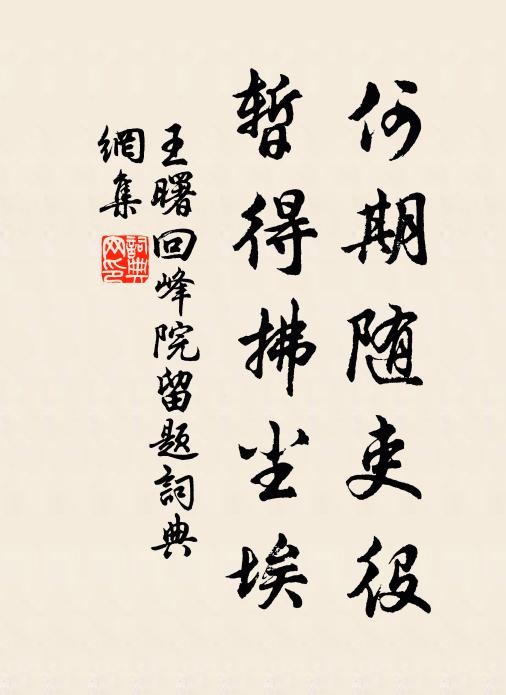 何期随吏役
暂得拂尘埃
王曙回峰院留题詞典
網集
詞典
网印